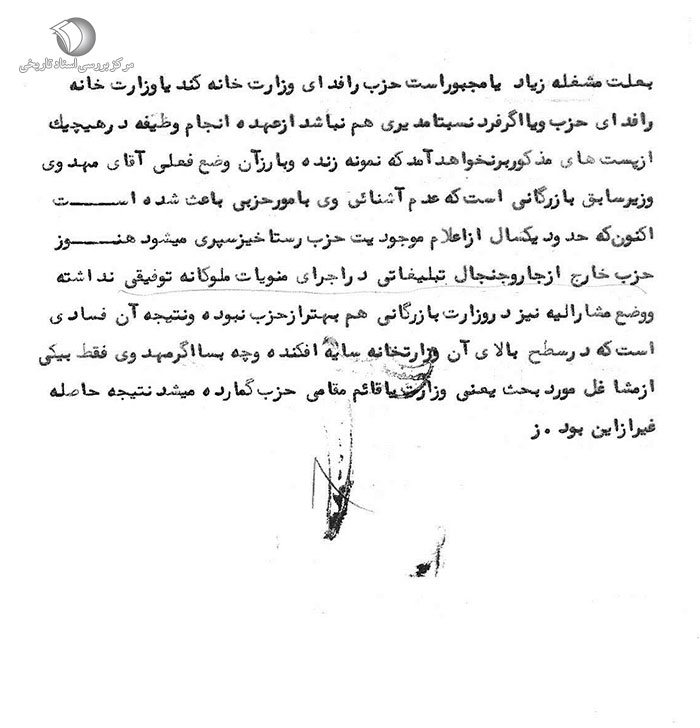 مرکز بررسی اسناد تاریخی
بعلت مشغله زیاد یا مجبور است حزب را فدای وزارت خانه کند یا وزارت خانه
را فدای حزب و یا اگر فرد نسبتا مدیری هم نباشد از عهده انجام وظیفه در هیچیک
از پست های مذکور برنخواهد آمد که نمونه زنده و بارز آن وضع فعلی آقای مهدوی
وزیر سابق بازرگانی است که عدم آشنائی وی بامور حزبی باعث شده اســـــت
اکنون که حدود یکسال از اعلام موجودیت حزب رستاخیز سپری میشود هنـــــوز
حزب خارج از جار و جنجال تبلیغاتی در اجرای منویات ملوکانه توفیقی نداشته
و وضع مشارالیه نیز در وزارت بازرگانی هم بهتر از حزب نبوده و نتیجه آن فسادی
است که در سطح بالای آن وزارتخانه سایه افکنده و چه بسا اگر مهدوی فقط بیکی
از مشاغل مورد بحث یعنی وزارت یا قائم مقامی حزب گمارده میشد نتیجه حاصله
غیر از این بود . ز